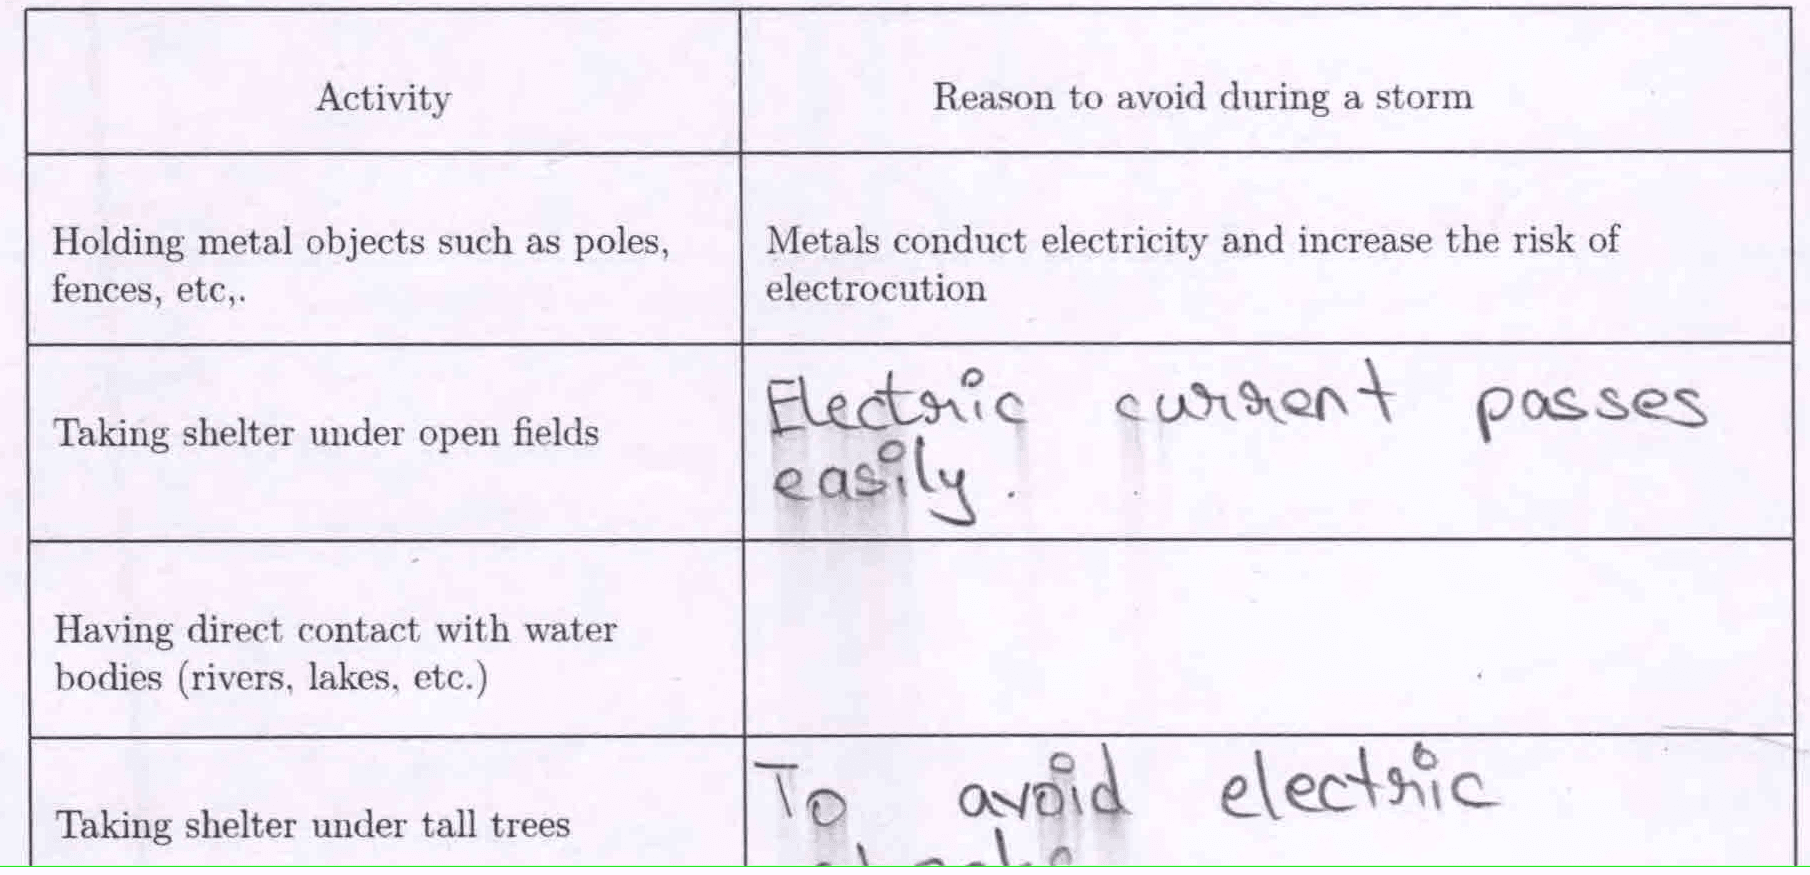 Activity
Reason to avoid during a storm
Holding metal objects such as poles,
fences, etc,.
Metals conduct electricity and increase the risk of
electrocution
Taking shelter under open fields
Electric current passes
easily.
Having direct contact with water
bodies (rivers, lakes, etc.)
Taking shelter under tall trees
To avoid electric